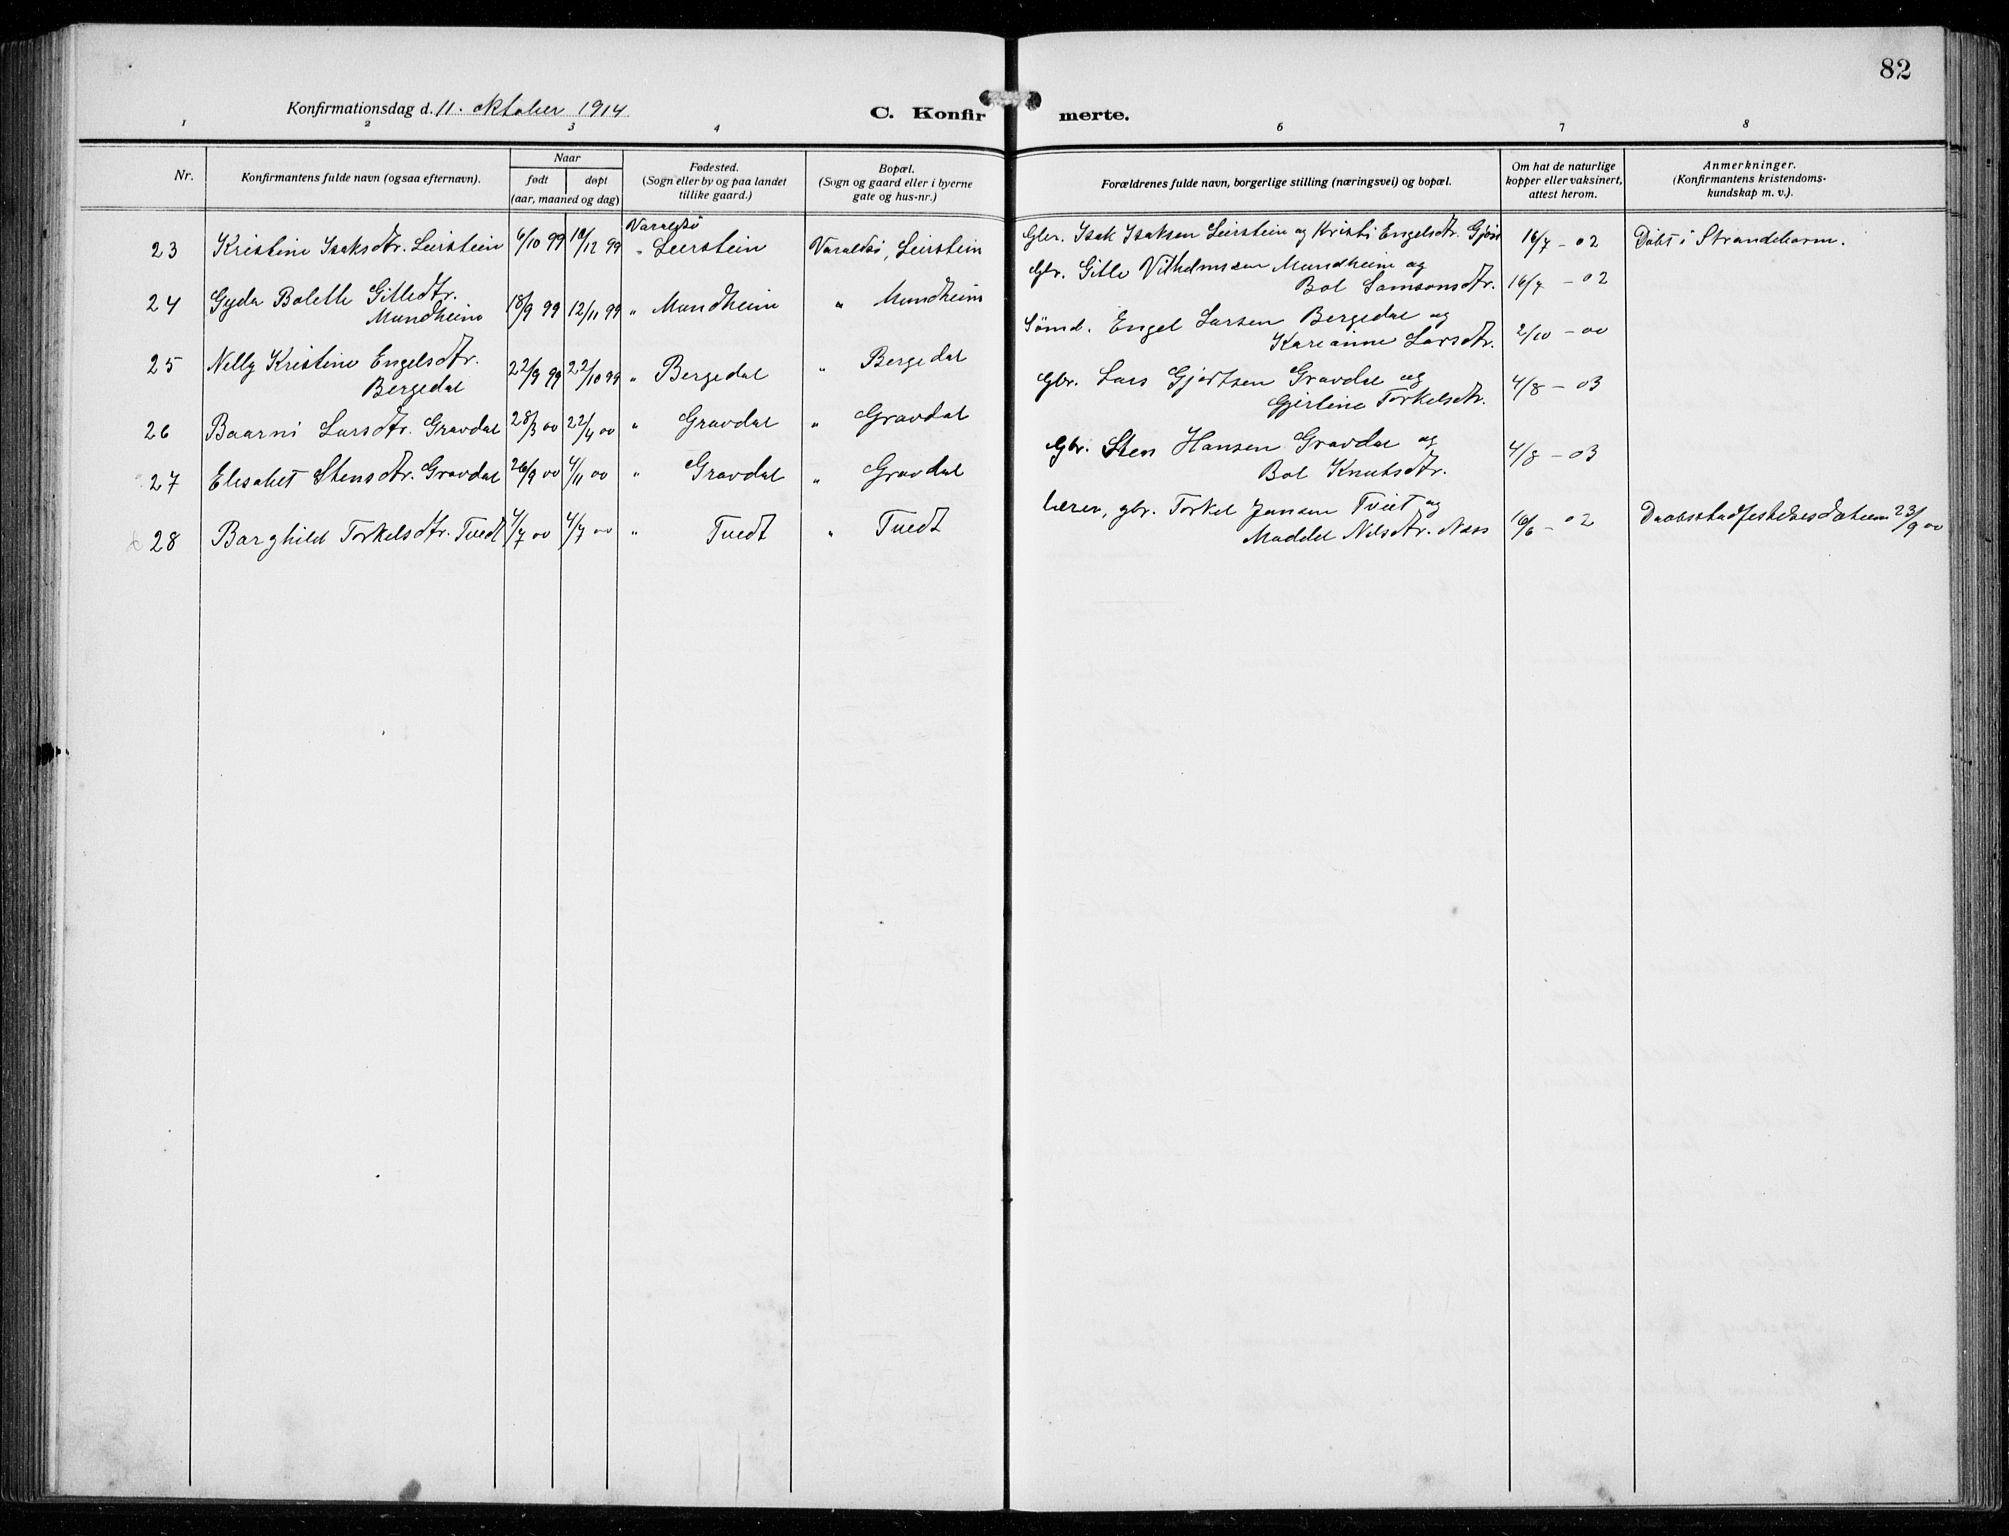 82
Konfirmationsdag d. 11. oktober 1914
C. Konfirmerte.
1 2 3 4 6 7 8
Nr.
Konfirmantens fulde navn (ogsaa efternavn).
Naar
født døpt
(aar, maaned og dag)
Fødested.
(Sogn eller by og paa landet
tillike gaard.)
Bopæl.
(Sogn og gaard eller i byerne
gate og hus-nr.)
Forældrenes fulde navn, borgerlige stilling (næringsvei) og bopæl.
Om hat de naturlige
kopper eller vaksinert,
attest herom.
Anmerkninger.
(Konfirmantens kristendoms-
kundskap m. v.).
Varaldsö
23 Kristine Isaksdtr. Leirstein 6/10 99 10/12 99 " Leirstein Varaldsö, Leirstein Gbr. Isak Isaksen Leirstein og Kristi Engelsdtr. 16/7 - 02 Döbt i Strandebarm.
24 Gyda Bolette Gitledtr.
Mundheim 18/9 99 12/11 99 " Mundheim " Mundheim Gbr. Gitle Vilhelmsen Mundheim og
Bol Samsonsdtr. 16/7 - 02
25 Nelly Kristine Engelsdtr.
Bergedal 22/9 99 22/10 99 " Bergedal " Bergedal Sømd. Engel Larsen Bergedal og
Karianne Larsdtr. 2/10 - 00
26 Baarni Larsdtr. Gravdal 28/3 00 22/4 00 " Gravdal " Gravdal Gbr. Lars Gjertsen Gravdal og
Gjertine Torkelsdtr. 4/8 - 03
27 Elisabet Stensdtr. Gravdal 26/9 00 4/11 00 " Gravdal " Gravdal Gbr. Sten Hansen Gravdal og
Bol Knutsdtr. 4/8 - 03
28 Borghild Torkelsdtr. Tvedt 4/7 00 4/7 00 " Tvedt " Tvedt Lærer, gbr. Torkel Jensen Tveit og
Maddel Nilsdtr. Næss 16/6 - 02 Daabsstadfestelsesdatum 23/9 00